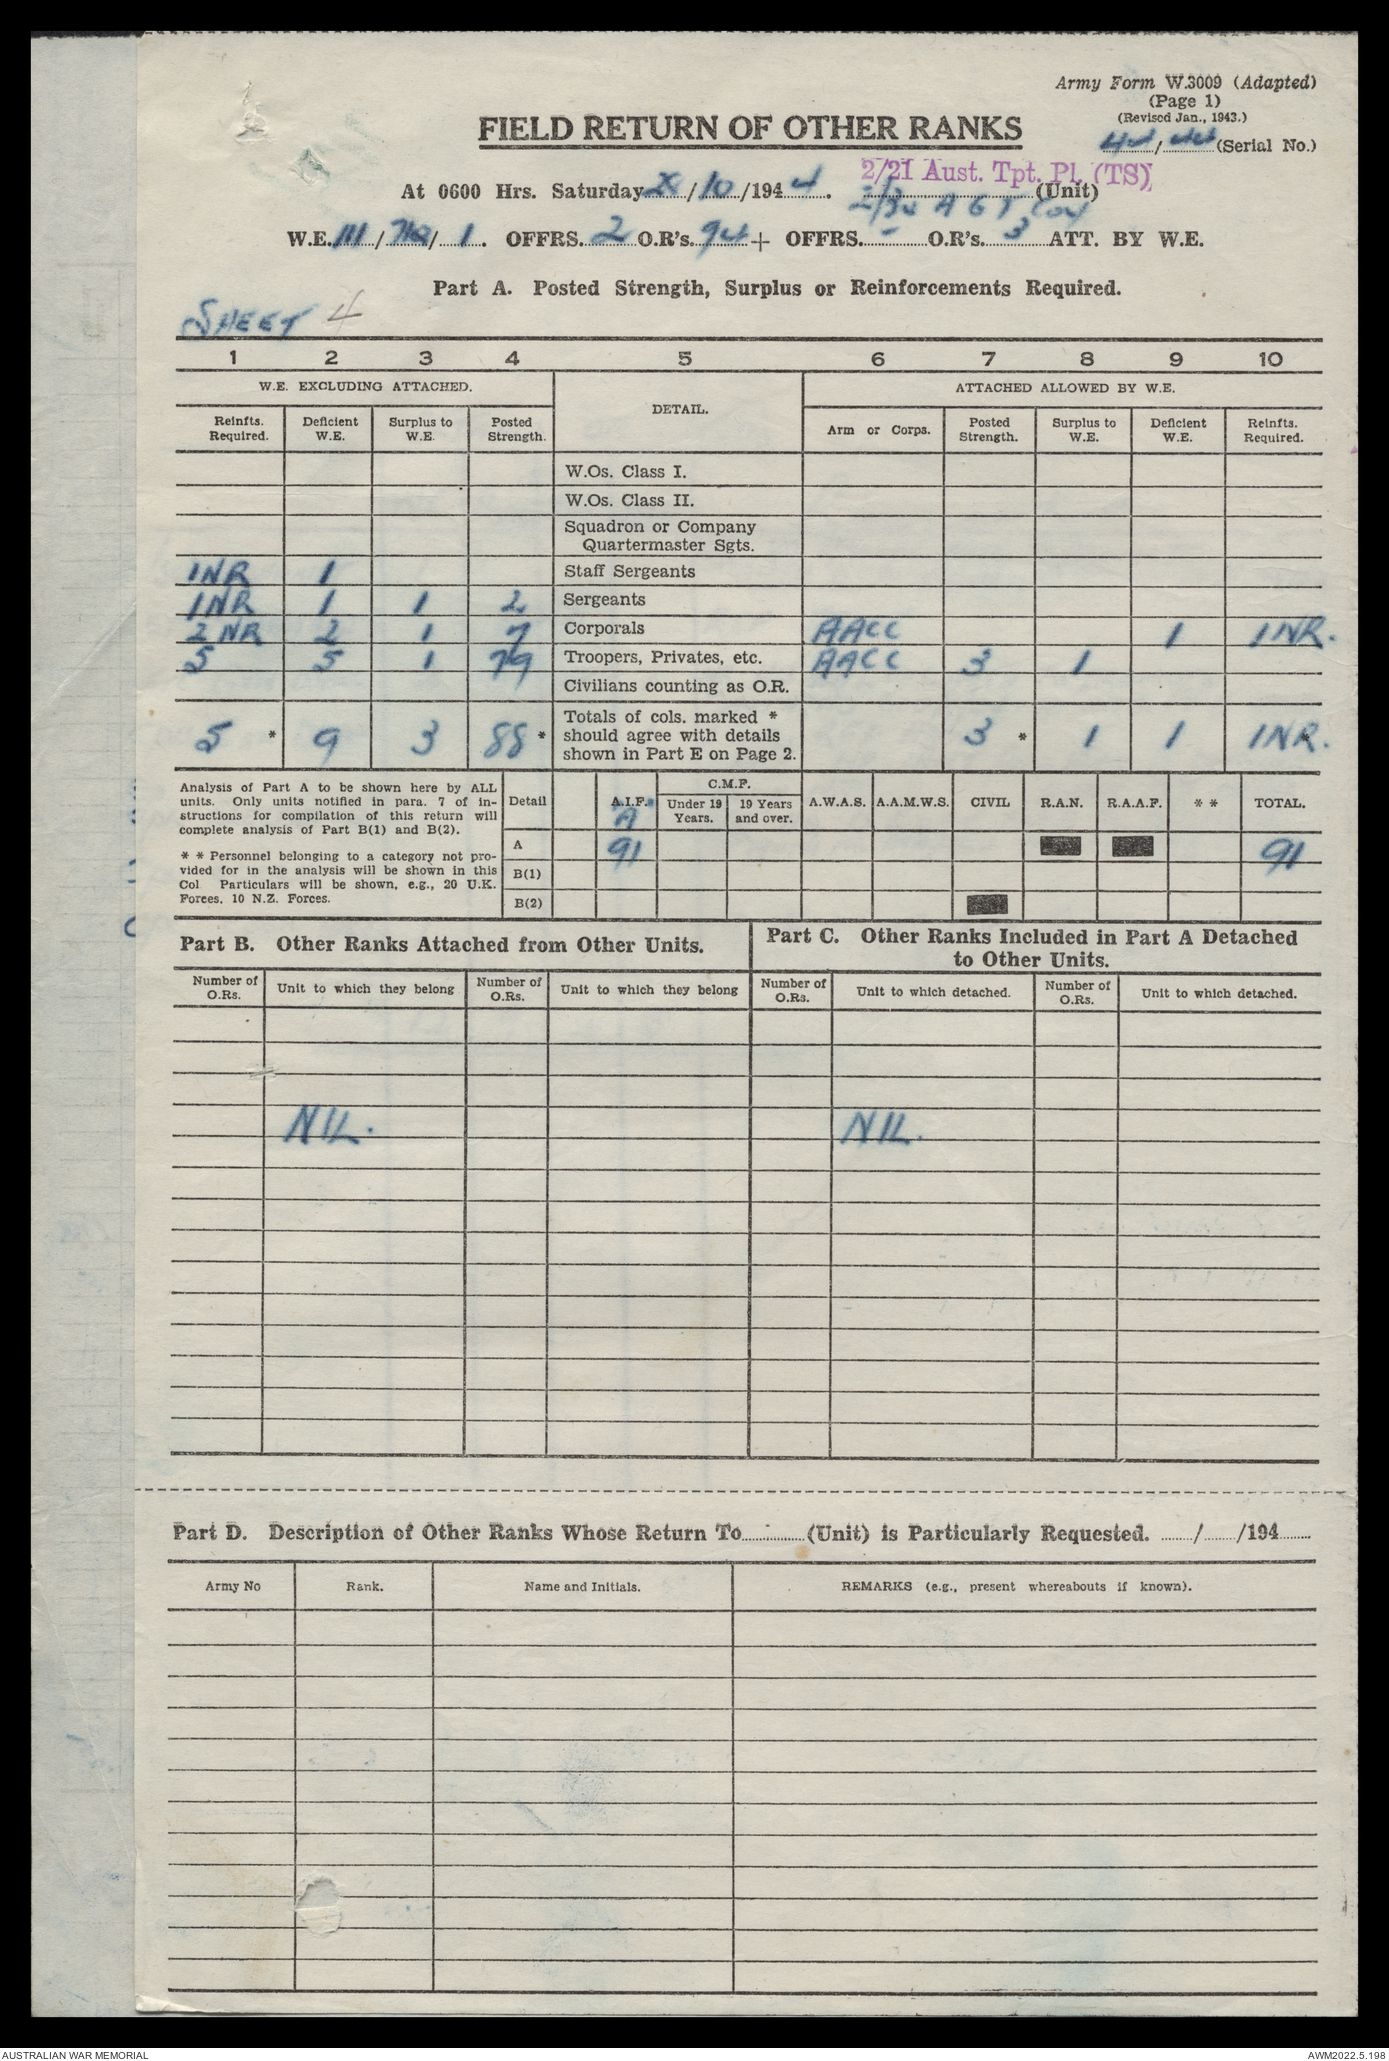 Army Form W.3009 (Adapted)
(Page 1)
(Revised Jan., 1943.)
FIELD RETURN OF OTHER RANKS
44/44 (Serial No.)
2/21 Aust. Tpt. Pl. (TS)
At 0600 Hrs. Saturday /10/1944. (Unit)
A G T Coy
W.E. 111/ /1. OFFRS. 2 O.R's. 94 + OFFRS. - O.R's. 3 ATT. BY W.E.
Part A. Posted Strength, Surplus or Reinforcements Required.
SHEET 4
1 2 3 4 5 6 7 8 9 10
W.E. EXCLUDING ATTACHED. DETAIL. ATTACHED ALLOWED BY W.E.
Reinfts. Required. Deficient W.E. Surplus to W.E. Posted Strength. Arm or Corps. Posted Strength. Surplus to W.E. Deficient W.E. Reinfts. Required.
W.Os. Class I.
W.Os. Class II.
Squadron or Company
Quartermaster Sgts.
1NR 1 Staff Sergeants
1NR 1 1 2 Sergeants
2 NR 2 1 7 Corporals AACC 1 1NR.
5 5 1 79 Troopers, Privates, etc. AACC 3 1
Civilians counting as O.R.
5 * 9 3 88 * Totals of cols. marked * should agree with details shown in Part E on Page 2. 3 * 1 1 1NR. *
Analysis of Part A to be shown here by ALL
units. Only units notified in para. 7 of in-
structions for compilation of this return will
complete analysis of Part B(1) and B(2).
* * Personnel belonging to a category not pro-
vided for in the analysis will be shown in this
Col Particulars will be shown, e.g., 20 U.K.
Forces, 10 N.Z. Forces.
Detail A.I.F. A C.M.F. Under 19 Years. 19 Years and over. A.W.A.S. A.A.M.W.S. CIVIL R.A.N. R.A.A.F. * * TOTAL.
A 91 91
B(1)
B(2)
Part B. Other Ranks Attached from Other Units.
Part C. Other Ranks Included in Part A Detached
to Other Units.
Number of O.Rs. Unit to which they belong Number of O.Rs. Unit to which they belong Number of O.Rs. Unit to which detached. Number of O.Rs. Unit to which detached.
NIL. NIL.
Part D. Description of Other Ranks Whose Return To (Unit) is Particularly Requested. / /194
Army No Rank. Name and Initials. REMARKS (e.g., present whereabouts if known).
AUSTRALIAN WAR MEMORIAL AWM2022.5.198